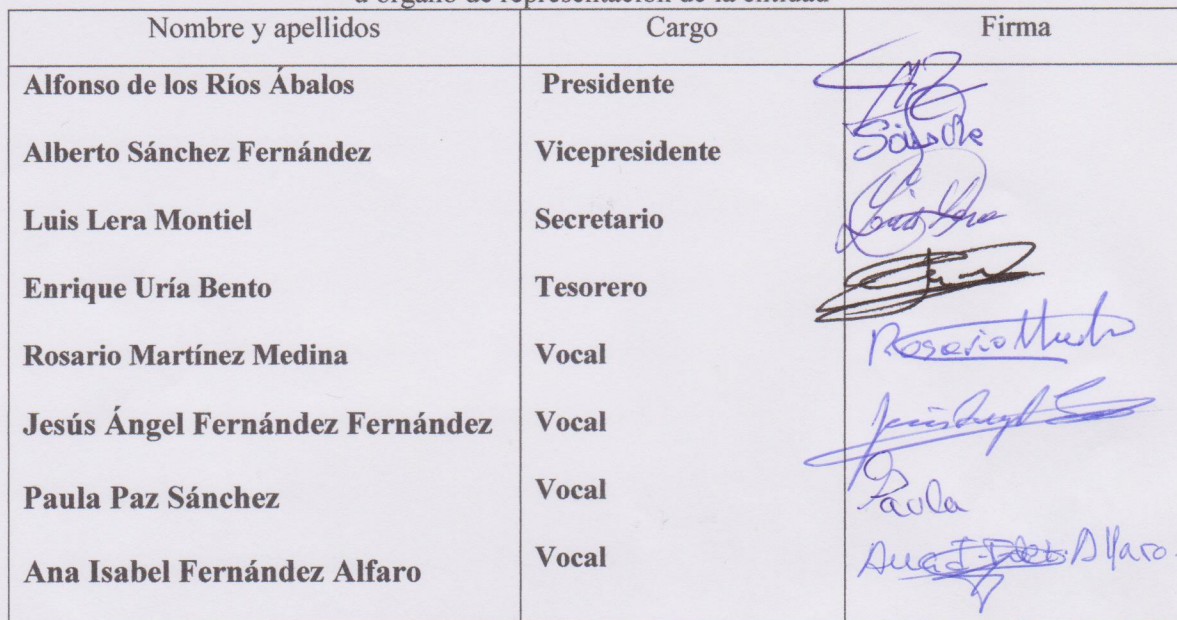 a órgano de representación de la entidad
Nombre y apellidos Cargo Firma
Alfonso de los Ríos Ábalos Presidente
Alberto Sánchez Fernández Vicepresidente
Luis Lera Montiel Secretario
Enrique Uría Bento Tesorero
Rosario Martínez Medina Vocal Rosario
Jesús Ángel Fernández Fernández Vocal
Paula Paz Sánchez Vocal Paula
Ana Isabel Fernández Alfaro Vocal Ana I. Alfaro